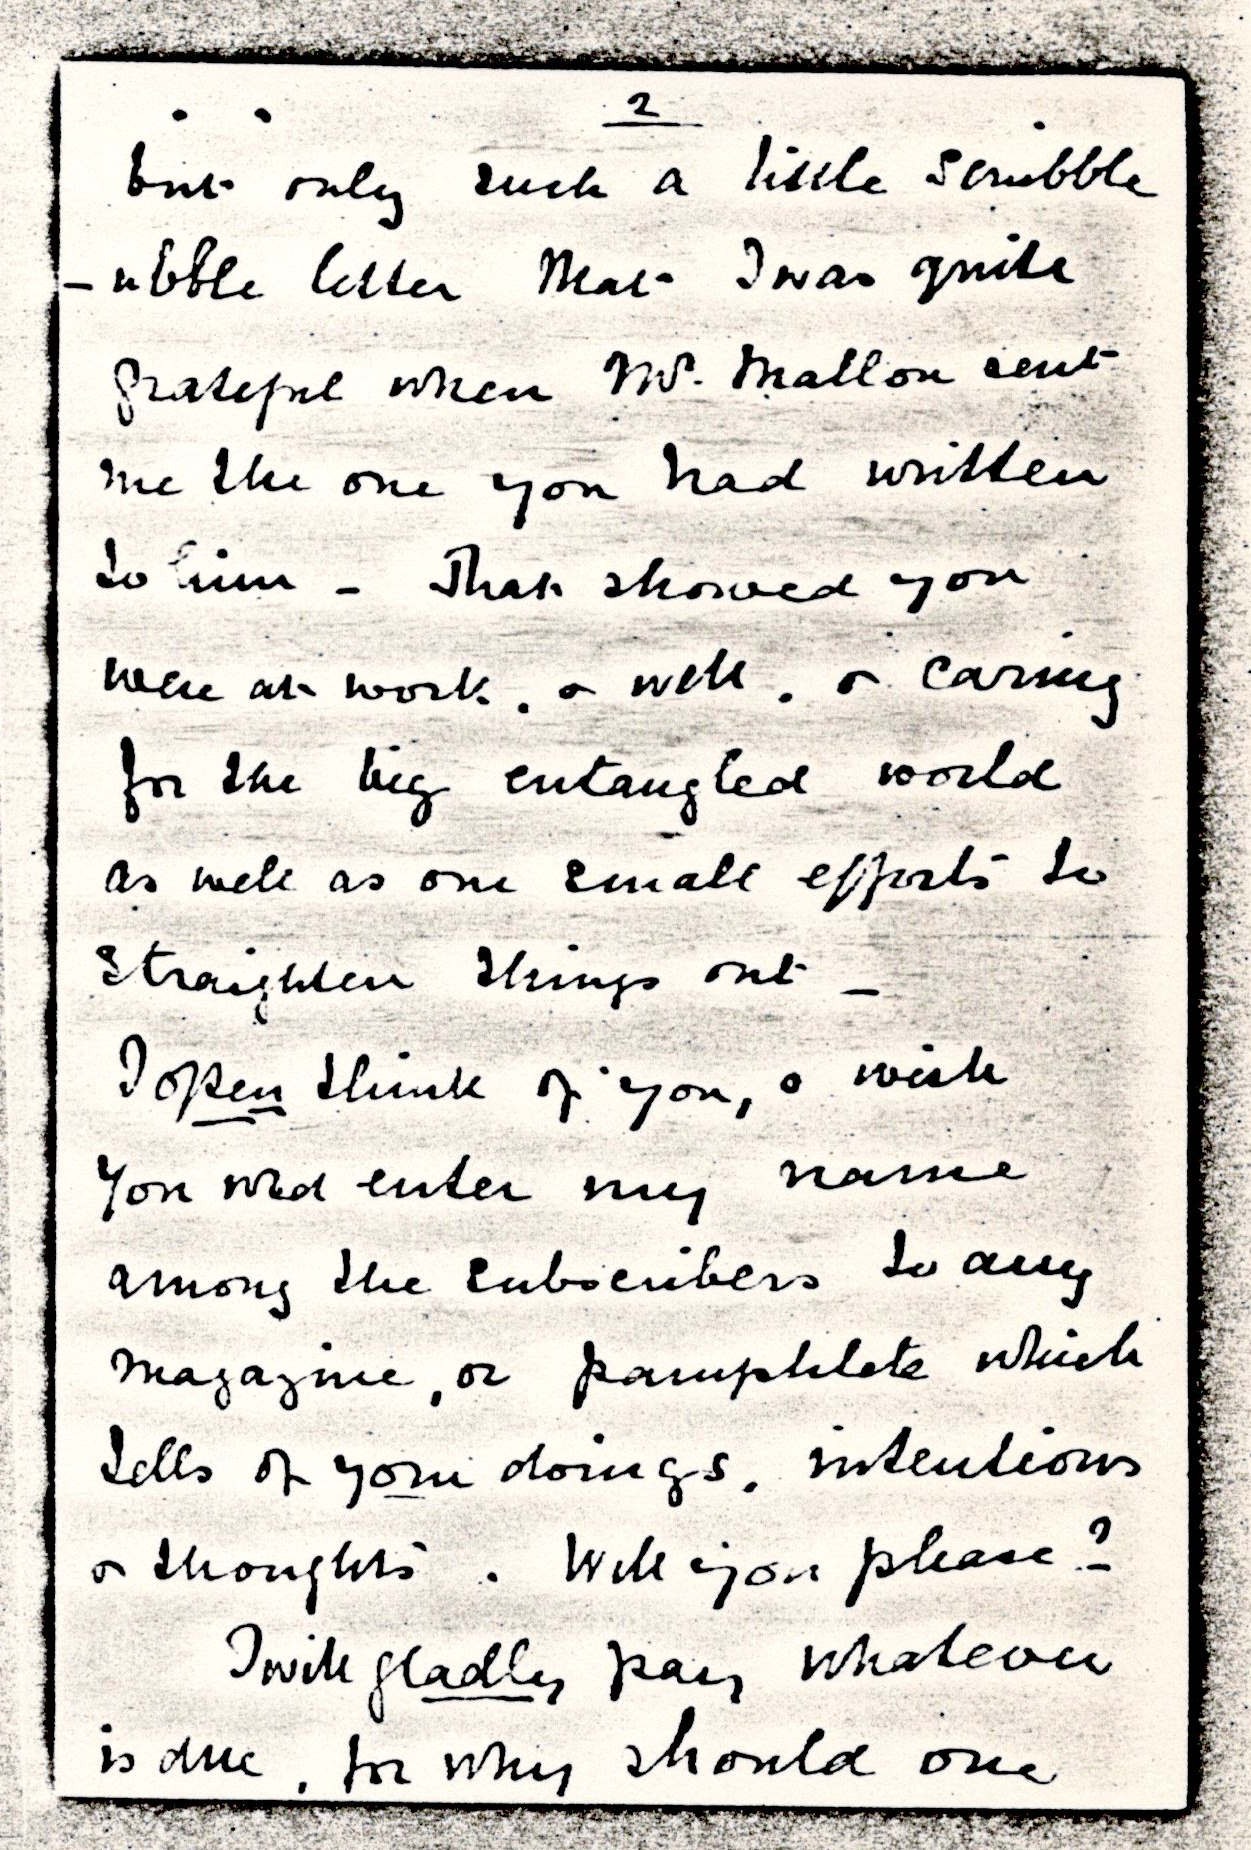 2
but only such a little scribble
-ubble letter that I was quite
grateful when Mr. Mallon sent
me the one you had written
to him - That showed you
were at work, & well, & caring
for the big entangled world
as well as one small efforts to
straighten things out -
I often think of you, & wish
you wld enter my name
among the subscribers to any
magazine, or pamphlets which
tells of your doings, intentions
& thoughts. Will you please?
I will gladly pay whatever
is due, for why should one